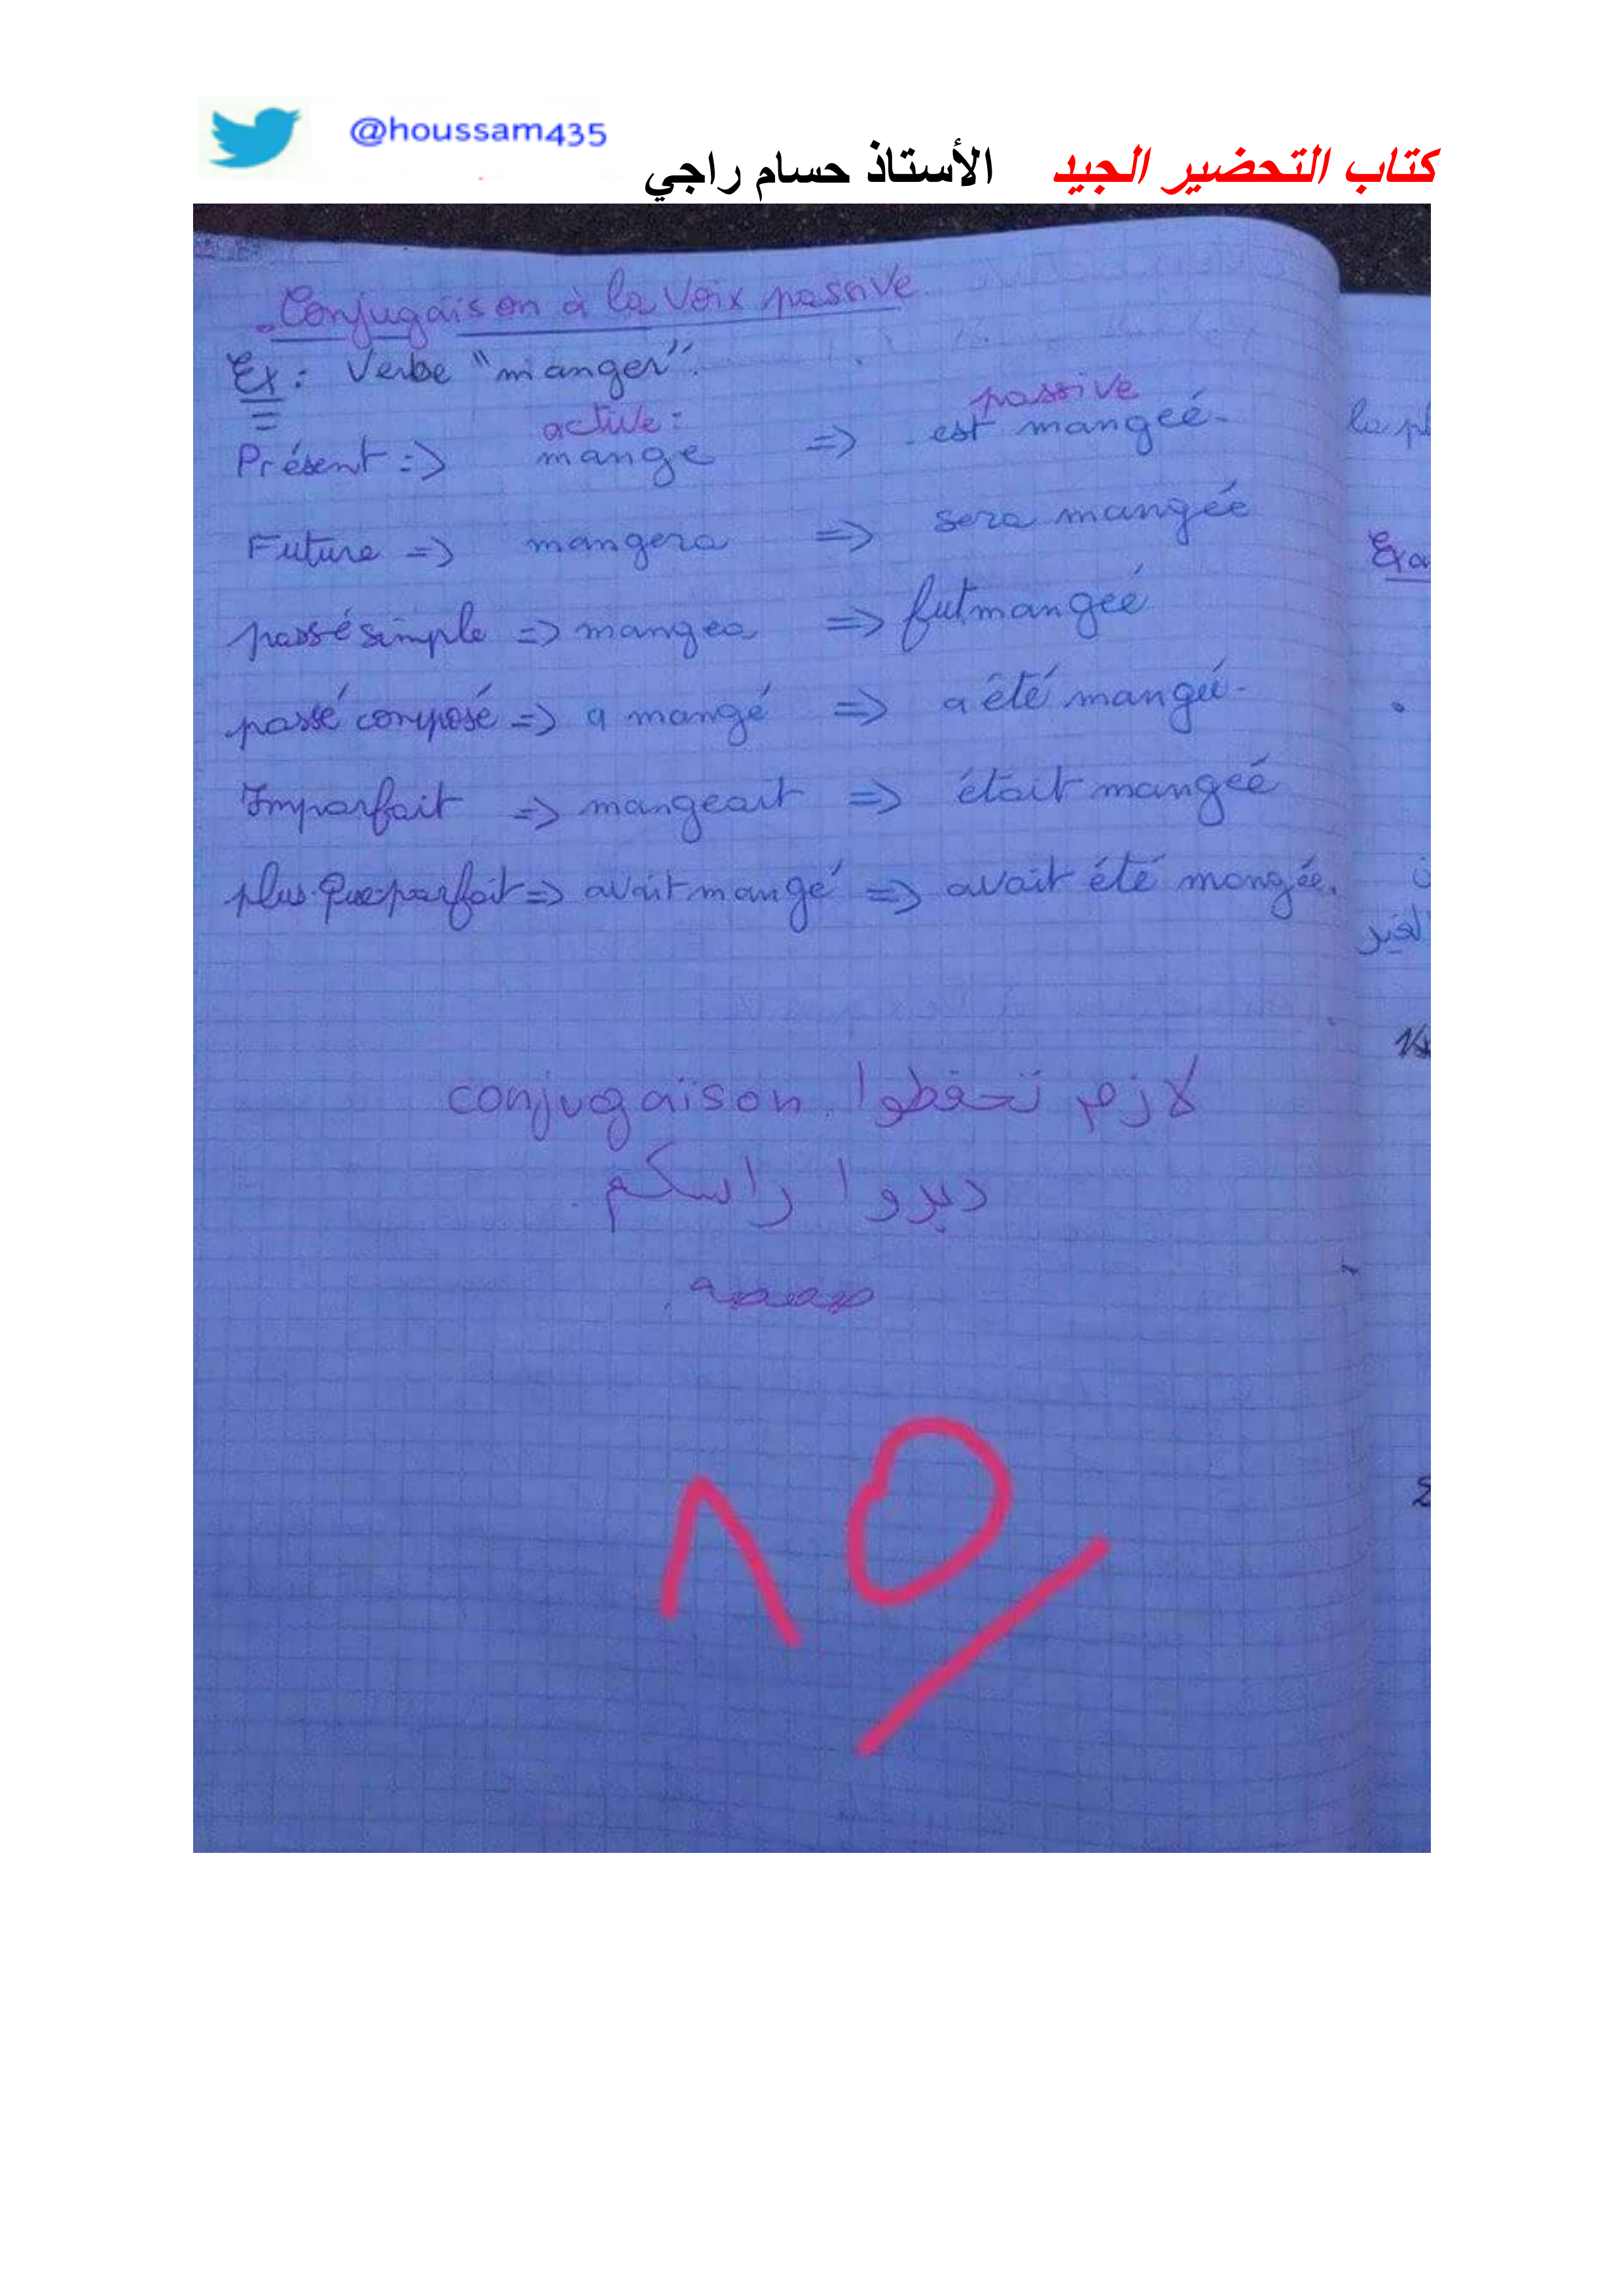 @houssam435
كتاب التحضير الجيد الأستاذ حسام راجي
Conjugaison à la Voix passive
Ex : Verbe "manger".
active : passive
Présent => mange => est mangeé
la pl
Future => mangera => sera mangée
Exa
passé simple => mangea => fut mangeé
passé composé => a mangé => a été mangeé
Imparfait => mangeait => était mangeé
plus-que-parfait => avait mangé => avait été mangée.
لازم تحفظوا conjugaison
ديروا راسكم
10